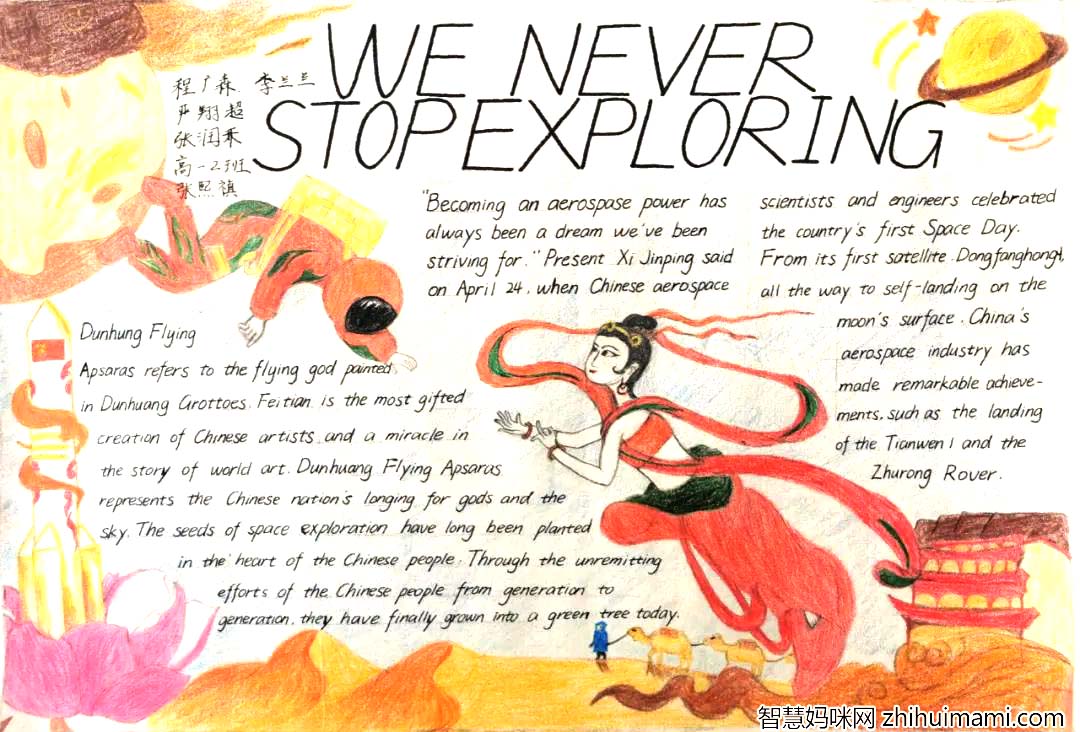 WE NEVER
STOP EXPLORING
程广森 李兰兰
尹翔超
张润乘
高一2班
张熙禛
"Becoming an aerospase power has
always been a dream we've been
striving for." Present Xi Jinping said
on April 24, when Chinese aerospace
scientists and engineers celebrated
the country's first Space Day.
From its first satellite. Dongfanghong1,
all the way to self-landing on the
moon's surface. China's
aerospace industry has
made remarkable achieve-
ments. such as the landing
of the Tianwen 1 and the
Zhurong Rover.
Dunhung Flying
Apsaras refers to the flying god painted
in Dunhuang Grottoes. Feitian is the most gifted
creation of Chinese artists and a miracle in
the story of world art. Dunhuang Flying Apsaras
represents the Chinese nation's longing for gods and the
sky. The seeds of space exploration have long been planted
in the heart of the Chinese people. Through the unremitting
efforts of the Chinese people from generation to
generation, they have finally grown into a green tree today.
智慧妈咪网 zhihuimami.com